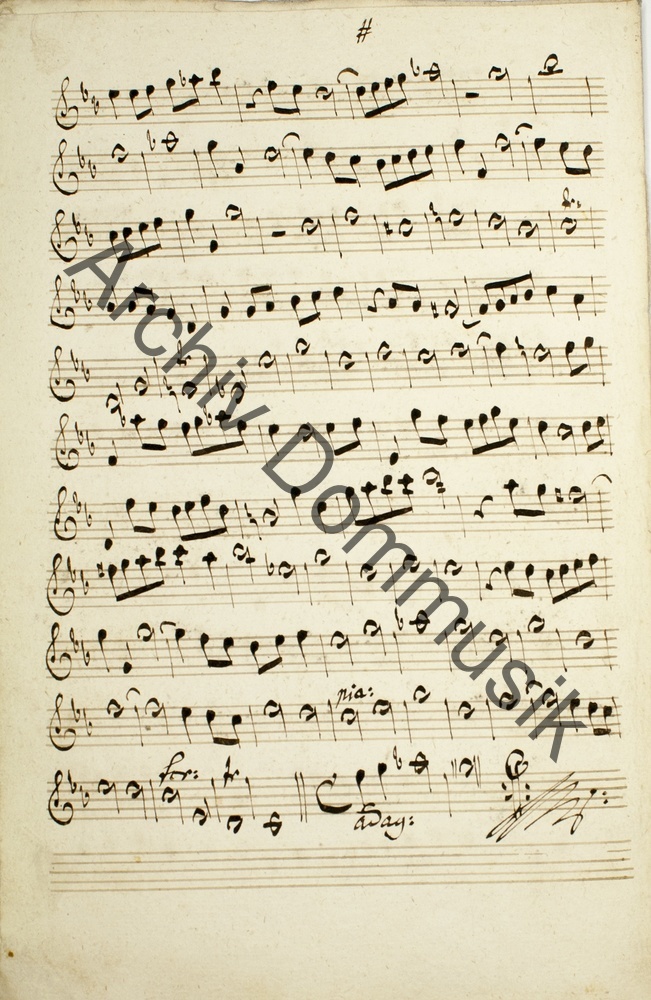 #
tr:
pia:
for: tr
aDag:
Archiv Dommusik